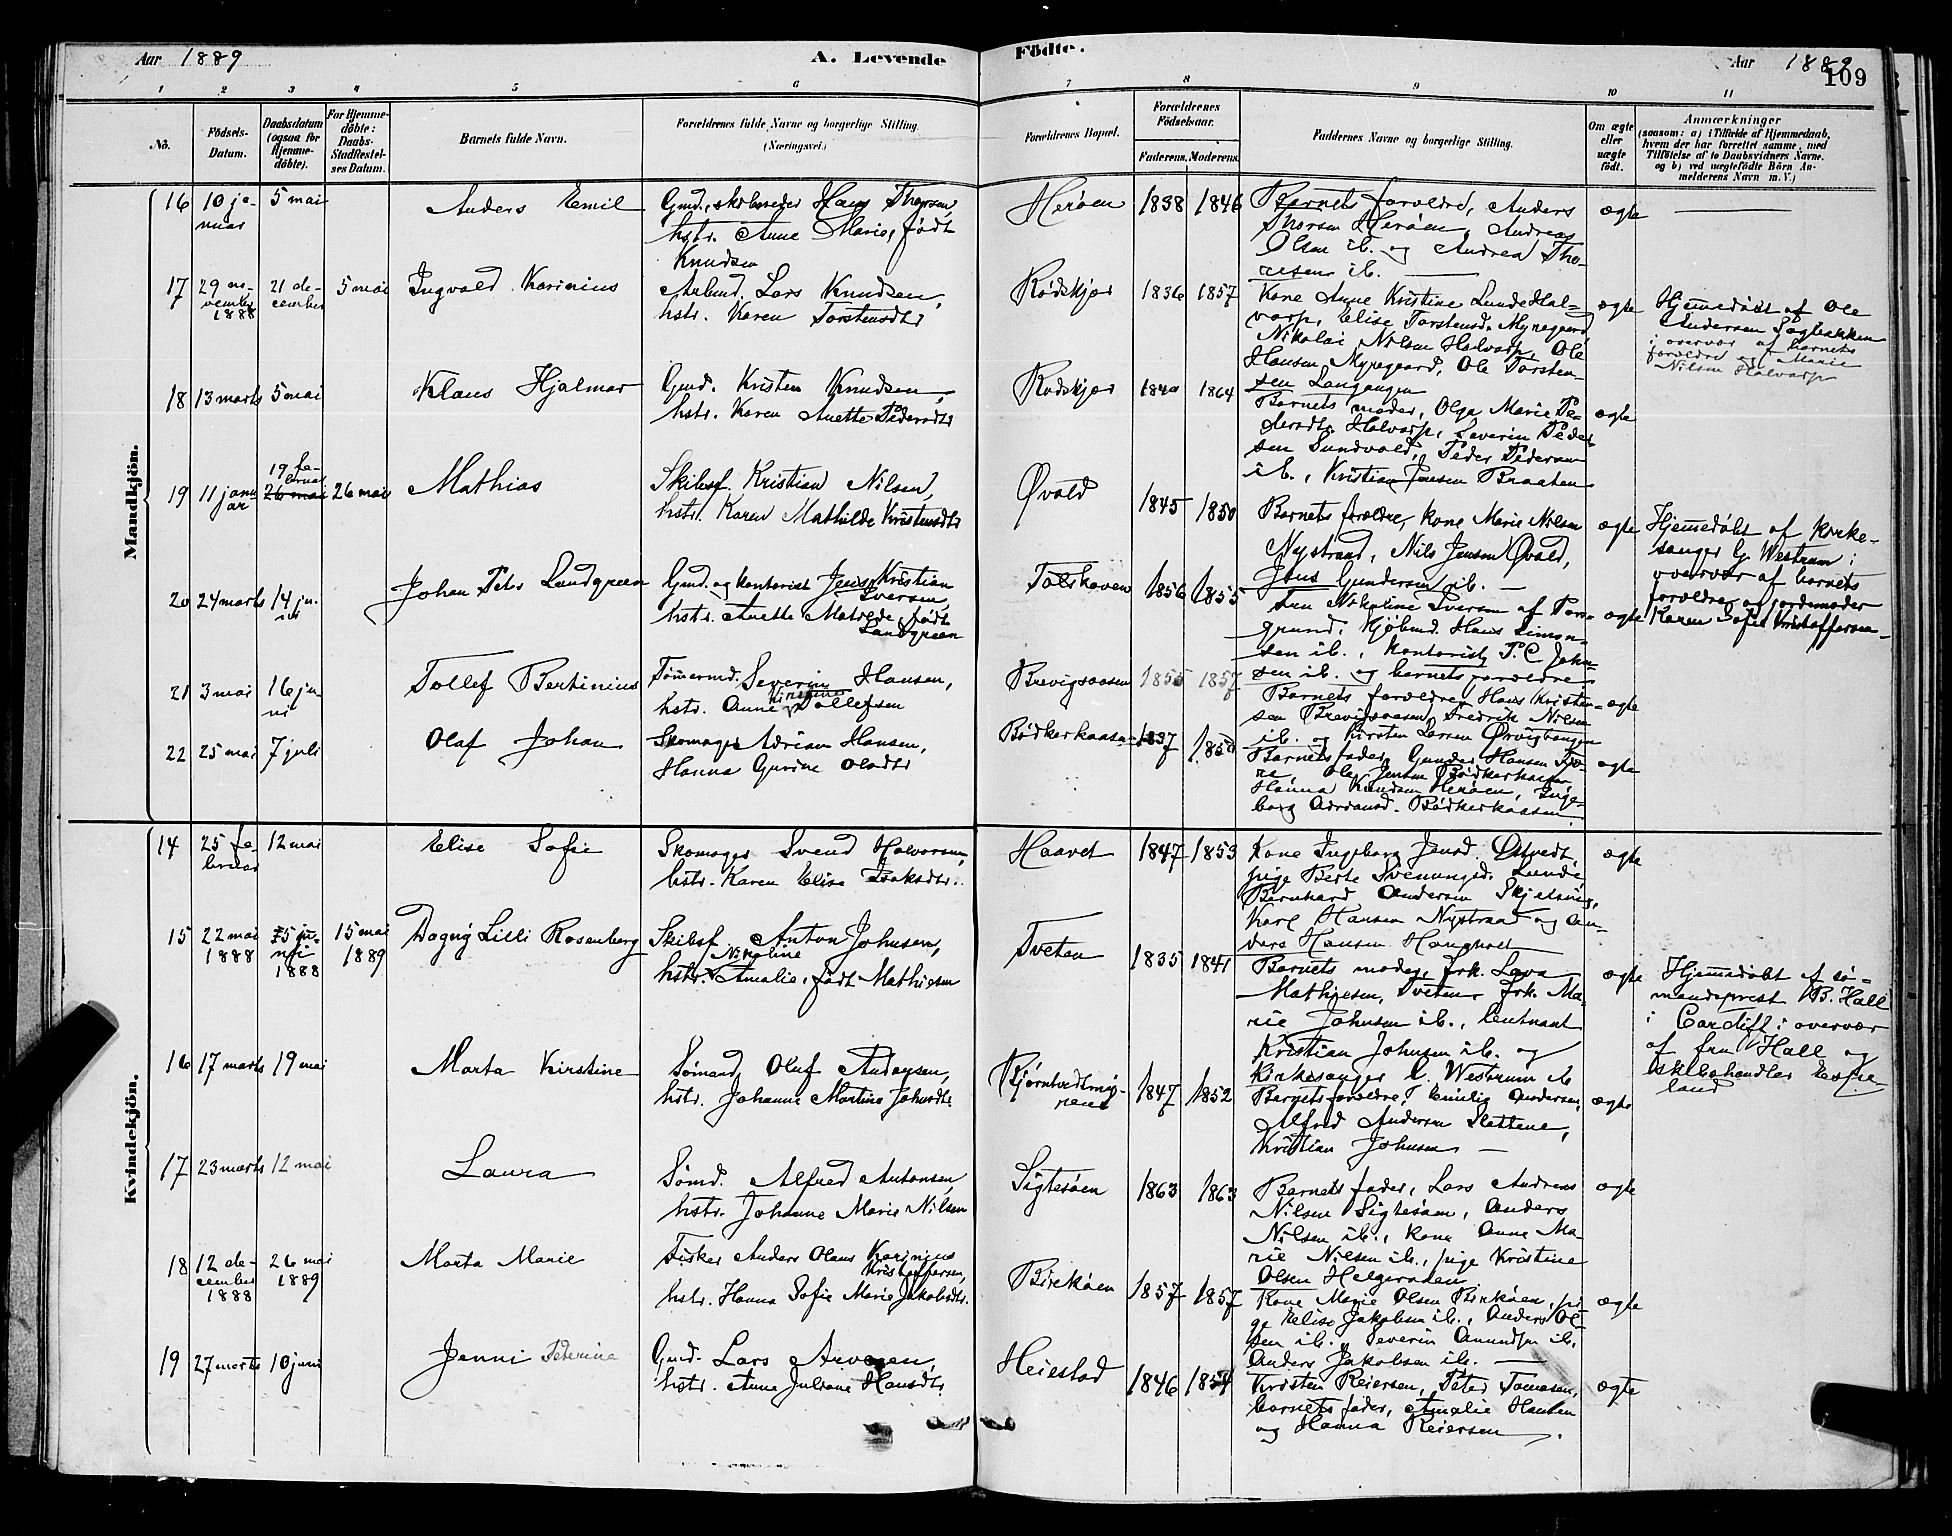 Aar 1889
A. Levende
Födte.
Aar 1889
109
1 2 3 4 5 6 7 8 9 10 11
No.
Födsels-
Datum.
Daabsdatum
(ogsaa for
Hjemme-
döbte).
For Hjemme-
döbte:
Daabs-
Stadfæstel-
ses Datum.
Barnets fulde Navn.
Forældrenes fulde Navne og borgerlige Stilling.
(Næringsvei.)
Forældrenes Bopæl.
Forældrenes
Födselsaar.
Faderens. Moderens.
Faddernes Navne og borgerlige Stilling.
Om ægte
eller
uægte
födt.
Anmærkninger
(saasom: a) i Tilfælde af Hjemmedaab,
hvem der har forrettet samme, med
Tilföielse af to Daabsvidners Navne.
og b) ved uægtefödte Börn An-
melderens Navn m. V.)
Mandkjön.
16
10 ja-
nuar
5 mai
Anders Emil
Gmd., skibsreder Hans Thorsen,
hstr. Anne Marie, født
Knudsen
Herøen
1838
1846
Barnets forældre, Anders
Thorsen Herøen, Andreas
Olsen ib. og Andrea Tho-
resen ib.
ægte
17
29 no-
vember
1888
21 de-
cember
5 mai
Ingvald Karinius
Arbmd. Lars Knudsen,
hstr. Karen Torstensdtr
Rødskjær
1836
1857
Kone Anne Kristine Lunde Hal-
varp, Elise Torstensd. Myregaard,
Nikolai Nilsen Halvarp, Ole
Hansen Myregaard, Ole Torsten-
sen Langangen
ægte
Hjemedøbt af Ole
Andersen Søgbekken
i overvær af barnets
forældre og Marie
Nilsen Halvarp
18
13 marts
5 mai
Klaus Hjalmar
Gmd. Kristen Knudsen,
hstr. Karen Anette Pedersdtr
Rødskjær
1840
1864
Barnets moder, Olga Marie Pe-
dersdtr. Halvarp, Severin Peder-
sen Sundvald, Peder Pedersen
ib., Kristian Jensen Braaten
ægte
19
11 janu
ar
19 fe-
bruar
26 mai
26 mai
Mathias
Skibsf. Kristian Nilsen,
hstr. Karen Mathilde Kristensdtr
Øvald
1845
1850
Barnets forældre, kone Marie Nilsen
Nystrand, Nils Jensen Øvald,
Jens Gundersen ib.
ægte
Hjemedøbt af kirke-
sanger G. Westrum i
overvær af barnets
forældre og jordemoder
Karen Sofie Kristoffersen
20
24 marts
14 ju-
ni
Johan Peter Lundgreen
Gmd. og kontorist Jens Kristian
Iversen,
hstr. Anette Matrede, født
Lundgreen
Tolshaven
1856
1855
Fru Nikoline Iversen af Pors-
grund, Kjøbmd. Hans Simon-
sen ib., kontorist P. C. John-
sen ib. og barnets forældre
ægte
21
3 mai
16 ju-
ni
Tollef Bertinius
Tømermd. Severin Hansen,
hstr. Anne Kirstine Tollefsen
Brevigsaasen
1855
1857
Barnets forældre, Hans Kristen-
sen Brevigsaasen, Fredrik Nilsen
ib. og Kirsten Larsen Ørvigbangen
ægte
22
25 mai
7 juli
Olaf Johan
Skomager Adrian Hansen,
Hanna Gurine Olsdtr
Bødkerkaasa
1837
1850
Barnets fader, Gunder Hansen
Ole Jensen Bødkerkaasa
Hanna Knudsen Herøen, Inge-
borg Adriansd. Bødkerkaasen.
ægte
Kvindekjön.
14
25 fe-
bruar
12 mai
Elise Sofie
Skomager Svend Halvorsen,
hstr. Karen Elise Isaksdtr.
Haavet
1847
1853
Kone Ingeborg Jensd. Østvedt,
pige Berte Svenungsd. Lunde
Bernhard Andersen Skjelsvig,
Karl Hansen Nystrand og An-
ders Hansen Haugholt
ægte
15
22 mai
1888
25 ju-
ni
1888
15 mai
1889
Dagny Lilli Rosenberg
Skibsf. Anton Johnsen,
Nikoline
hstr. Amalie, født Mathiesen
Tveten
1835
1841
Barnets moder, frk. Lava
Mathiesen, Tveten, frk. Ma-
rie Johnsen ib., leutnant
Kristian Johnsen ib. og
Kirkesanger G. Westrum ib
ægte
Hjemedøbt af sø-
mandsprest B. Hall
i Cardiff i overvær
af fru Hall og
skibshandler Espe-
land
16
17 marts
19 mai
Marta Kirstine
Sømand Oluf Andersen,
hstr. Johanne Martine Johnsdtr.
Bjørntvedtmy-
rene
1847
1852
Barnets forældre, Emilie Andersen,
Alfred Andersen Slettene,
Kristian Johnsen
ægte
17
23 marts
12 mai
Laura
Sømd. Alfred Antonsen,
hstr. Johanne Marie Nilsen
Sigtesøen
1863
1863
Barnets fader, Lars Andreas
Nilsen Sigtesøen, Anders
Nilsen ib., kone Anne Ma-
rie Nilsen ib., pige Kristine
Olsen Helgeraaen
ægte
18
12 de-
cember
1888
26 mai
1889
Marta Marie
Fisker Anders Olaus Karinius
Kristoffersen,
hstr. Hanna Sofie Marie Jakobsdtr.
Birkøen
1857
1857
Kone Marie Olsen Birkøen, pi-
ge Elise Jakobsen ib., Anders Ol-
sen ib., Severin Amundsen ib.,
Anders Jakobsen ib.
ægte
19
27 marts
10 juni
Jenni Peterine
Gmd. Lars Arvesen,
hstr. Anne Juliane Hansdtr
Heiestad
1846
1854
Kristen Reiersen, Peter Tomesen,
barnets fader, Amalie Hansen
og Hanna Reiersen.
ægte